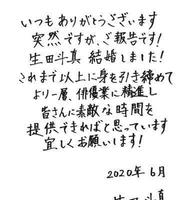 いつもありがとうございます
突然ですが、ご報告です!
生田斗真 結婚しました!
これまで以上に身を引き締めて
より一層、俳優業に精進し
皆さんに素敵な時間を
提供できればと思っています
宜しくお願いします!
2020年6月
生田斗真